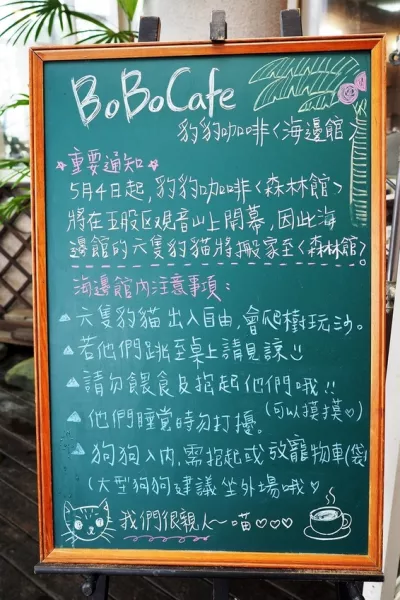 BoBoCafe
豹豹咖啡<海邊館>
重要通知
5月4日起,豹豹咖啡<森林館>
將在五股区觀音山上開幕,因此海
邊館的六隻豹貓將搬家至<森林館>
海邊館內注意事項:
六隻豹貓出入自由,會爬樹玩沙。
若他們跳至桌上請見諒!!
請勿餵食及抱起他們哦!!
(可以摸摸♡)
他們睡覚時勿打擾。
狗狗入內,需抱起或放寵物車(袋
(大型狗狗建議坐外場哦♡
我們很親人~喵♡♡♡